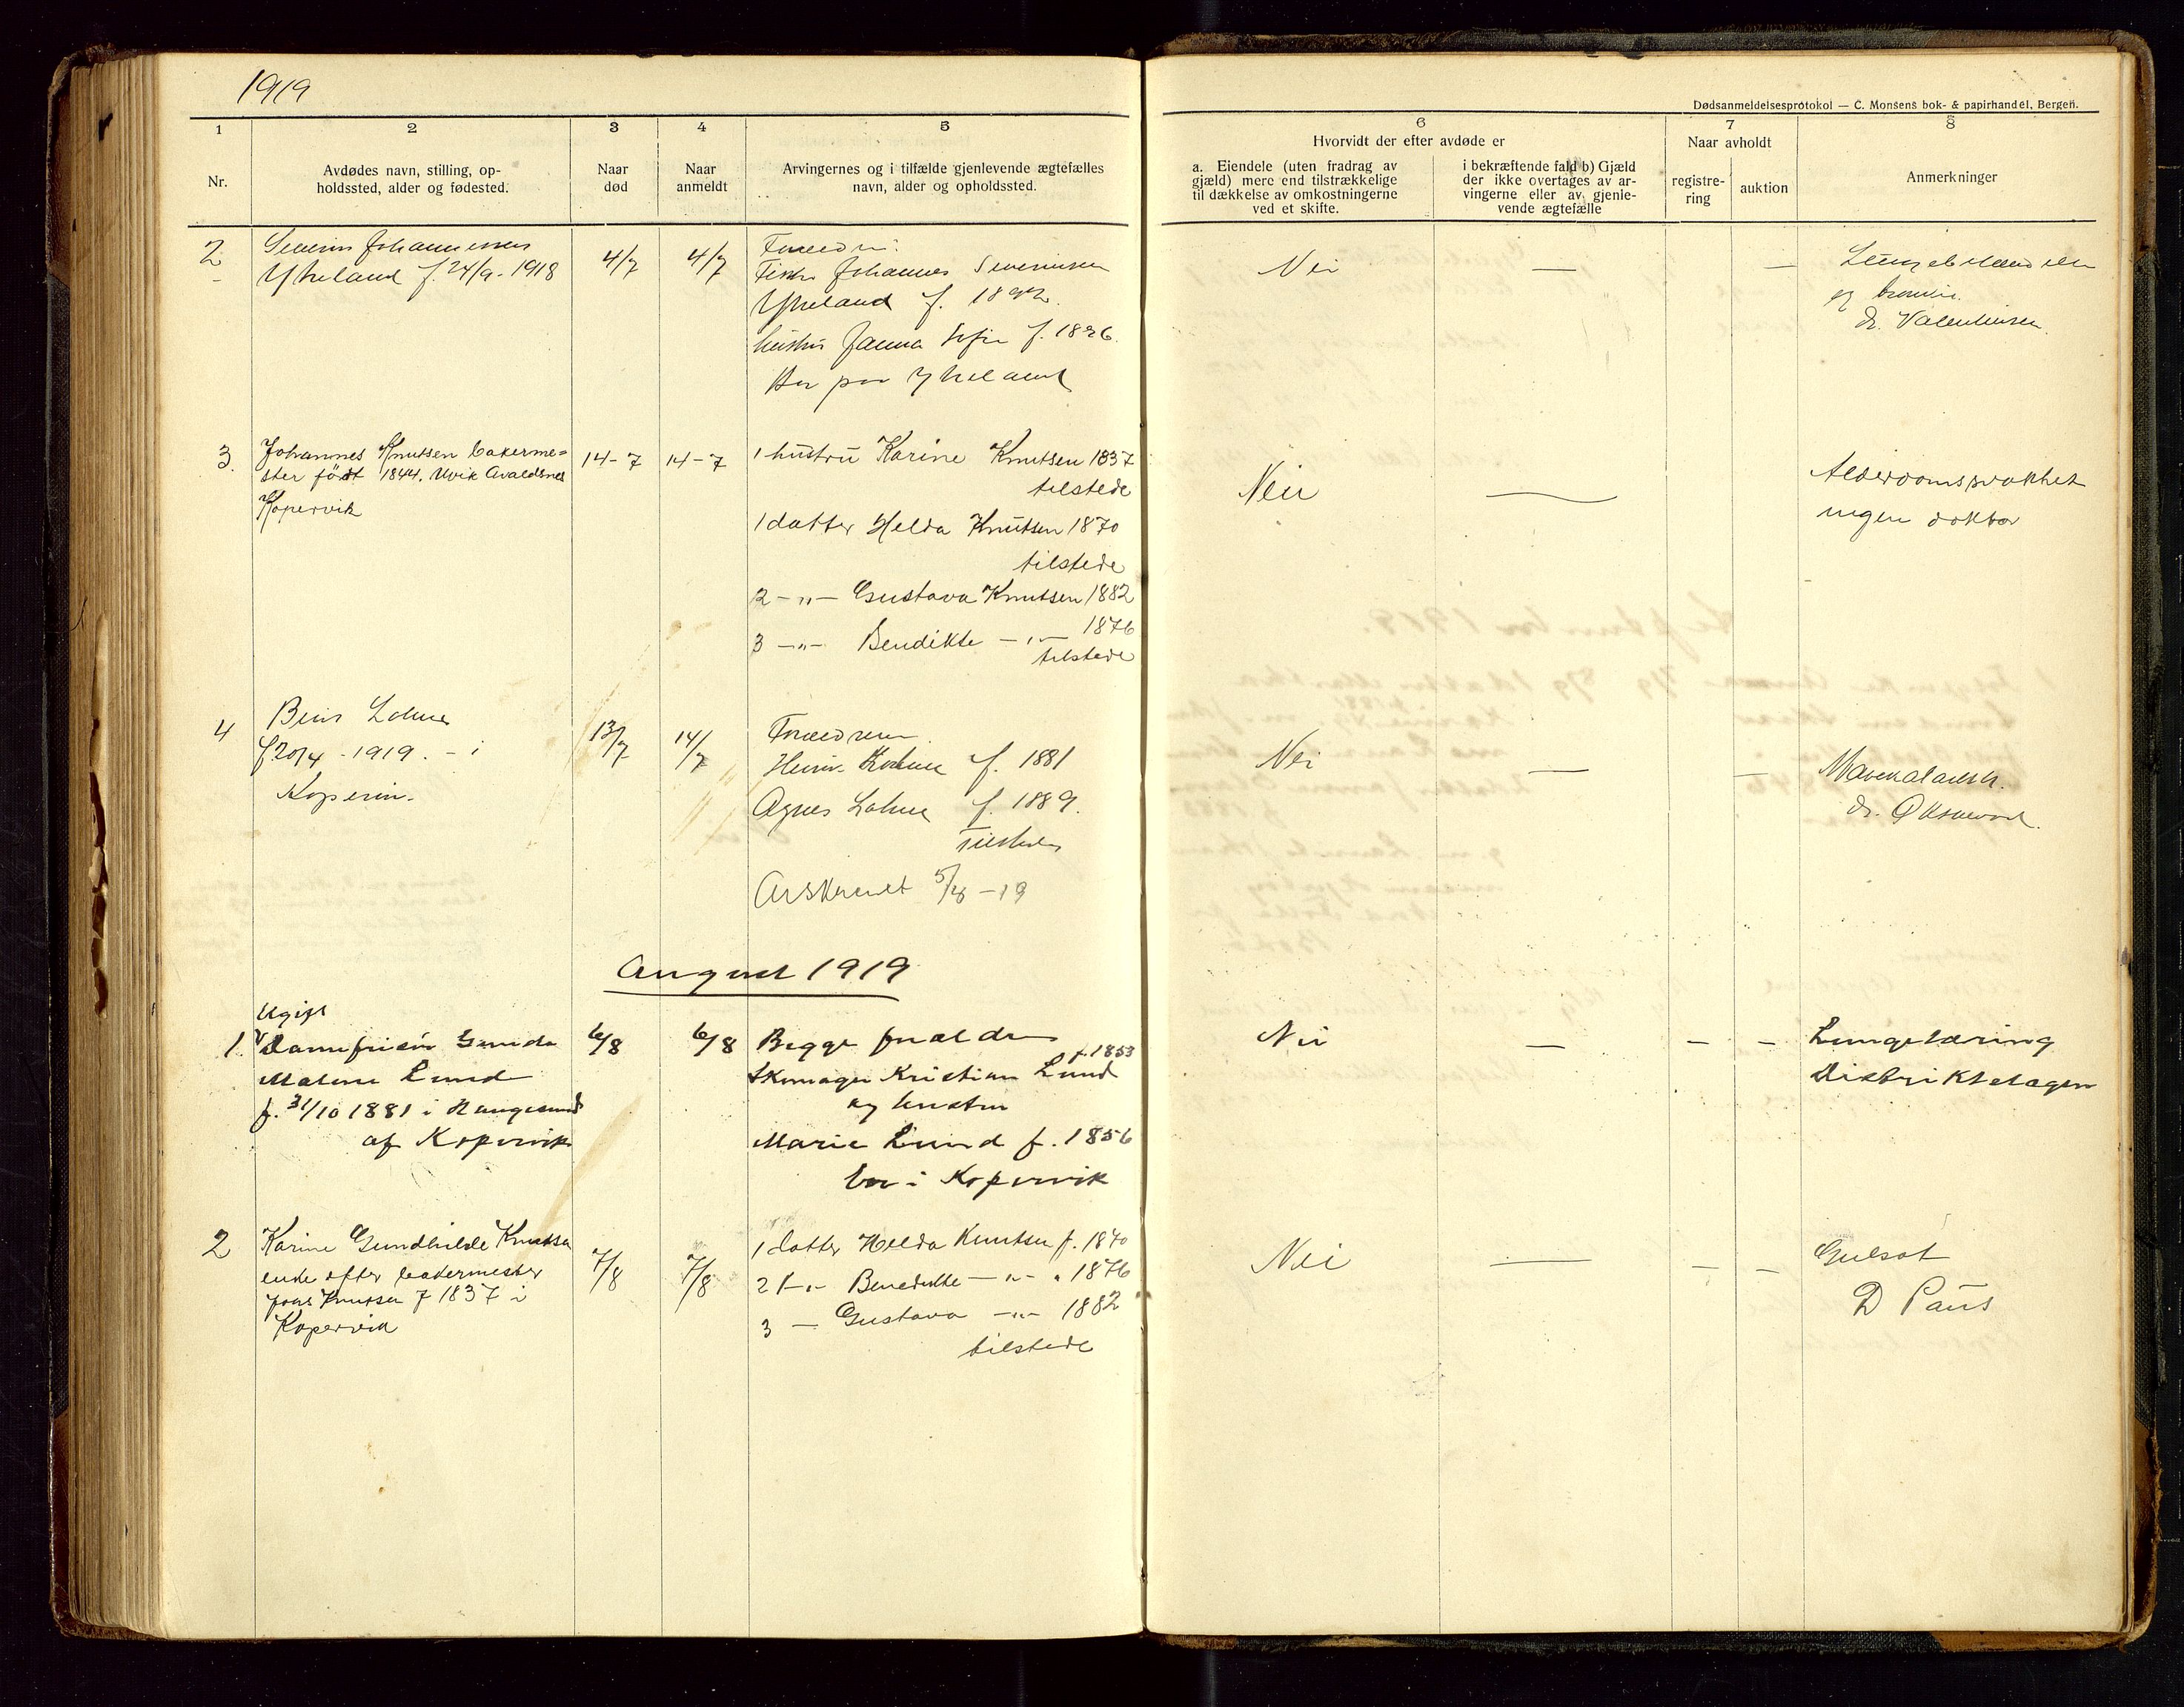 1919
Dødsanmeldelsesprotokol — C. Monsens bok- & papirhandel, Bergen.
1
2
3
4
5
6
7
8
Nr.
Avdødes navn, stilling, op-
holdssted, alder og fødested.
Naar
død
Naar
anmeldt
Arvingernes og i tilfælde gjenlevende ægtefælles
navn, alder og opholdssted.
Hvorvidt der efter avdøde er
a. Eiendele (uten fradrag av
gjæld) mere end tilstrækkelige
til dækkelse av omkostningerne
ved et skifte.
i bekræftende fald b) Gjæld
der ikke overtages av ar-
vingerne eller av gjenle-
vende ægtefælle
Naar avholdt
registre-
ring
auktion
Anmerkninger
2
Severin Johannessen
Ytreland f. 24/9 - 1918
4/7
4/7
Johannes Severinsen
Ytreland f.
hustru Janna Sofie f.
Bor paa Ytreland
Nei
—
—
og
dr. Valentinsen
3.
Johannes Knutsen bakerme=
ster født 1844. Utvik Avaldsnes
Kopervik
14-7
14-7
1 hustru Karine Knutsen 1837
tilstede
1 datter Helda Knutsen 1870
tilstede
2 -"- Gustava Knutsen 1882
3 -"- Bendikte -"- 1876
tilstede
Nei
—
Alderdomssvakhet
ingen doktor
4
f 20/4 - 1919. - i
13/7
14/7
Forældrene
f. 1881
Agnes f. 1889.
Tilstede
Avskrevet 5/8 - 19
Nei
—
—
dr.
August 1919
1.
Ugift
Malene Lund
f. 31/10 1881 i Haugesund
af Kopervik
6/8
6/8
Begge forældre
Skomager Kristian Lund f. 1853
og hustru
Marie Lund f. 1856
bor i Kopervik
Nei
—
—
—
Lungetæring
Distriktslægen
2
Karine Gundhilde Knutsen
enke efter bakermester
Johs Knutsen f 1837 i
Kopervik
7/8
7/8
1 datter Helda Knutsen f. 1870
2 1-"- Benedikte -"- " 1876
3 — Gustava -"- 1882
tilstede
Nei
—
—
—
Gulsot
D Paus